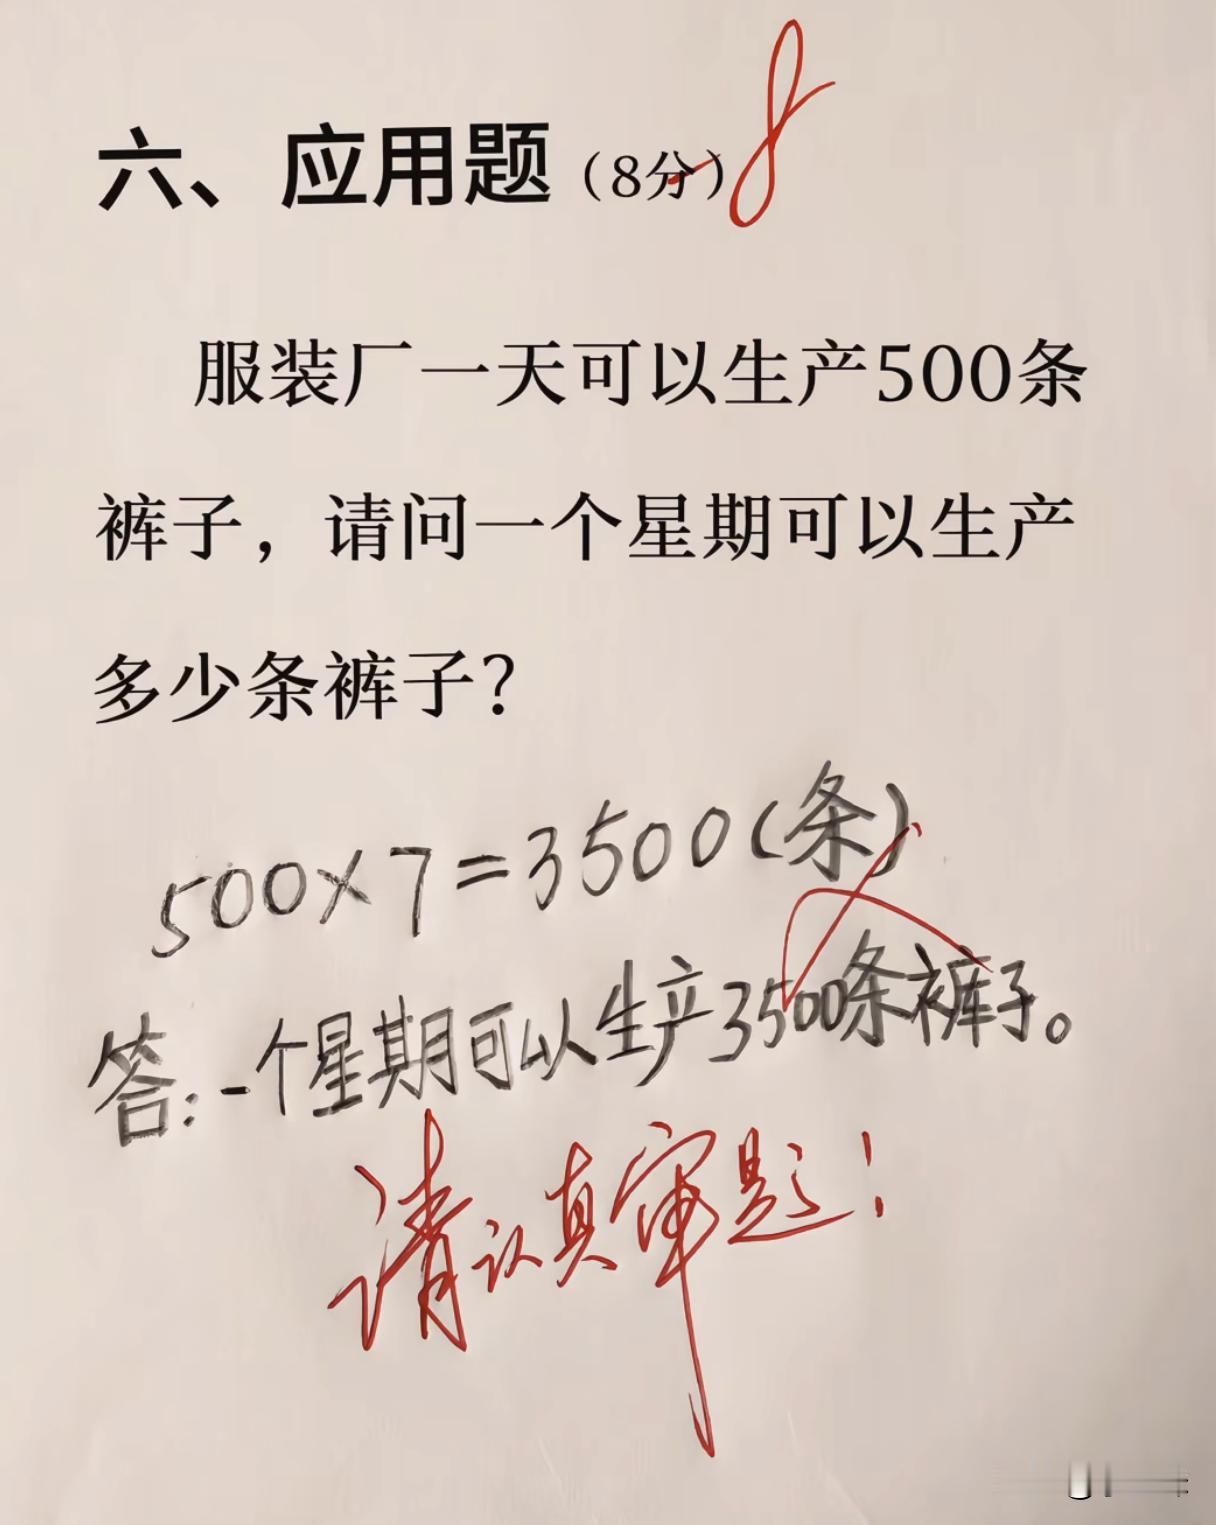 六、应用题（8分）-8
服装厂一天可以生产500条
裤子，请问一个星期可以生产
多少条裤子？
500×7=3500(条)
答:一个星期可以生产3500条裤子。
请认真审题!